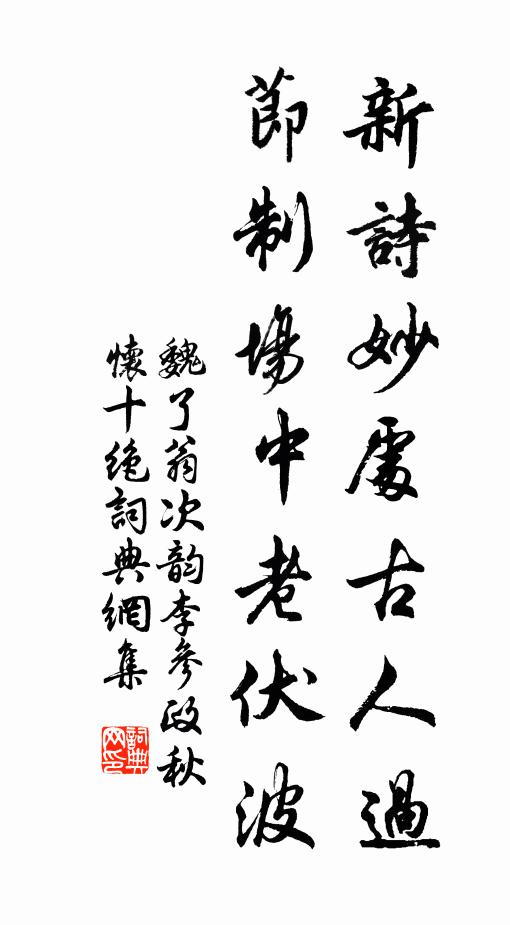 新詩妙處古人過
節制場中老伏波
魏了翁次韵李參政秋
懷十绝詞典網集
詞典网印